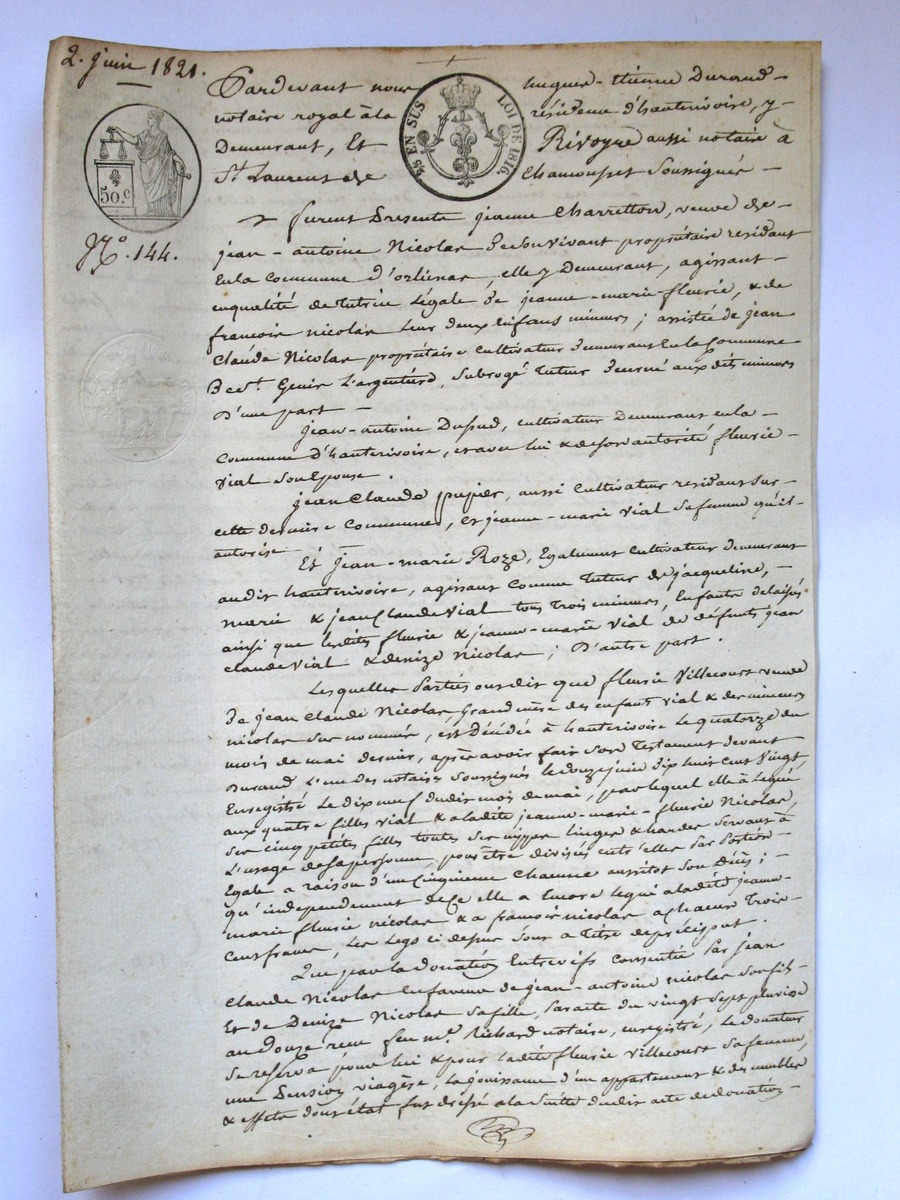 2. juin 1821.
Pardevant nous hugues-étienne Durand-
notaire royal à la résidence d'hauterivoire, y-
Demeurant, Et Rivoyre aussi notaire à
St Laurent de Chamousset Soussignés-
¼ EN SUS LOI DE 1816
50.c
No. 144.
furent Présente jeanne Charretton, veuve de
jean-antoine Nicolas De Son vivant propriétaire residant
En la Commune d'orliénas, elle y Demeurant, agissant-
en qualité de tutrice Légale de jeanne-marie-fleurie, & de
francois nicolas Leur deux Enfans mineurs; assistée de jean
Claude Nicolas propriétaire Cultivateur demeurant En la Commune
De St. Genis L'argentière, Subrogé tuteur Décerné aux dits mineurs
D'une part-
jean-antoine Dupud, cultivateur Demeurant en la-
Commune D'hauterivoire, et avec lui & de son autorité fleurie-
Vial Son Epouse.
jean Claude pupier, aussi Cultivateur residant Sur-
cette derniere Commune, Et jeanne-marie Vial Sa femme qu'il-
autorise-
Et jean-marie Roze, Egalement Cultivateur demeurant
audit hauterivoire, agissant Comme tuteur de jacqueline,-
marie & jean Claude Vial tous trois mineurs, Enfants délaissés
ainsi que lesdites fleurie & jeanne-marie Vial de défunts jean
Claude Vial & denize Nicolas; D'autre part.
Lesquelles Parties ont dit que fleurie Villecourt veuve
De jean Claude Nicolas, Grand mère des enfants Vial & des mineurs
nicolas Sus nommé, est Décédée à hauterivoire Le quatorze du
mois de mai dernier, après avoir fait Son Testament devant
Durand L'un Des notaires Soussignés le douze juin dix huit cent Vingt,
Enregistré Le dix neuf dudit mois de mai, par lequel elle à Legué
aux quatre filles Vial & a ladite jeanne-marie-fleurie Nicolas,
Ses cinq petites filles toutes Ses nippes linges & hardes Servant à
L'usage de Sa personne, pour être divisés entr'elles Par Portion-
Egale a raison d'un Cinquieme Chacune aussitot Son Décès;-
qu'independemment de Ce elle a Encore legué a ladite jeanne-
marie fleurie nicolas & a francois nicolas a Chacun Trois-
Cent francs, Les Legs ci dessus Sont a titre de préciput.
Que par la donation Entrevifs Consentie Par jean
Claude Nicolas En faveur de jean-antoine nicolas Son fils-
Et de Denize Nicolas Sa fille, Par acte du vingt Sept pluviose
an Douze reçu feu me. Richard notaire, enregistré, Le donateur
Se reserva pour lui & pour ladite fleurie Villecourt Sa femme,
une Pension viagère, La jouissance d'un appartement & des meubles
& effets dont état fut dressé a la Suitte dudit acte de donation-